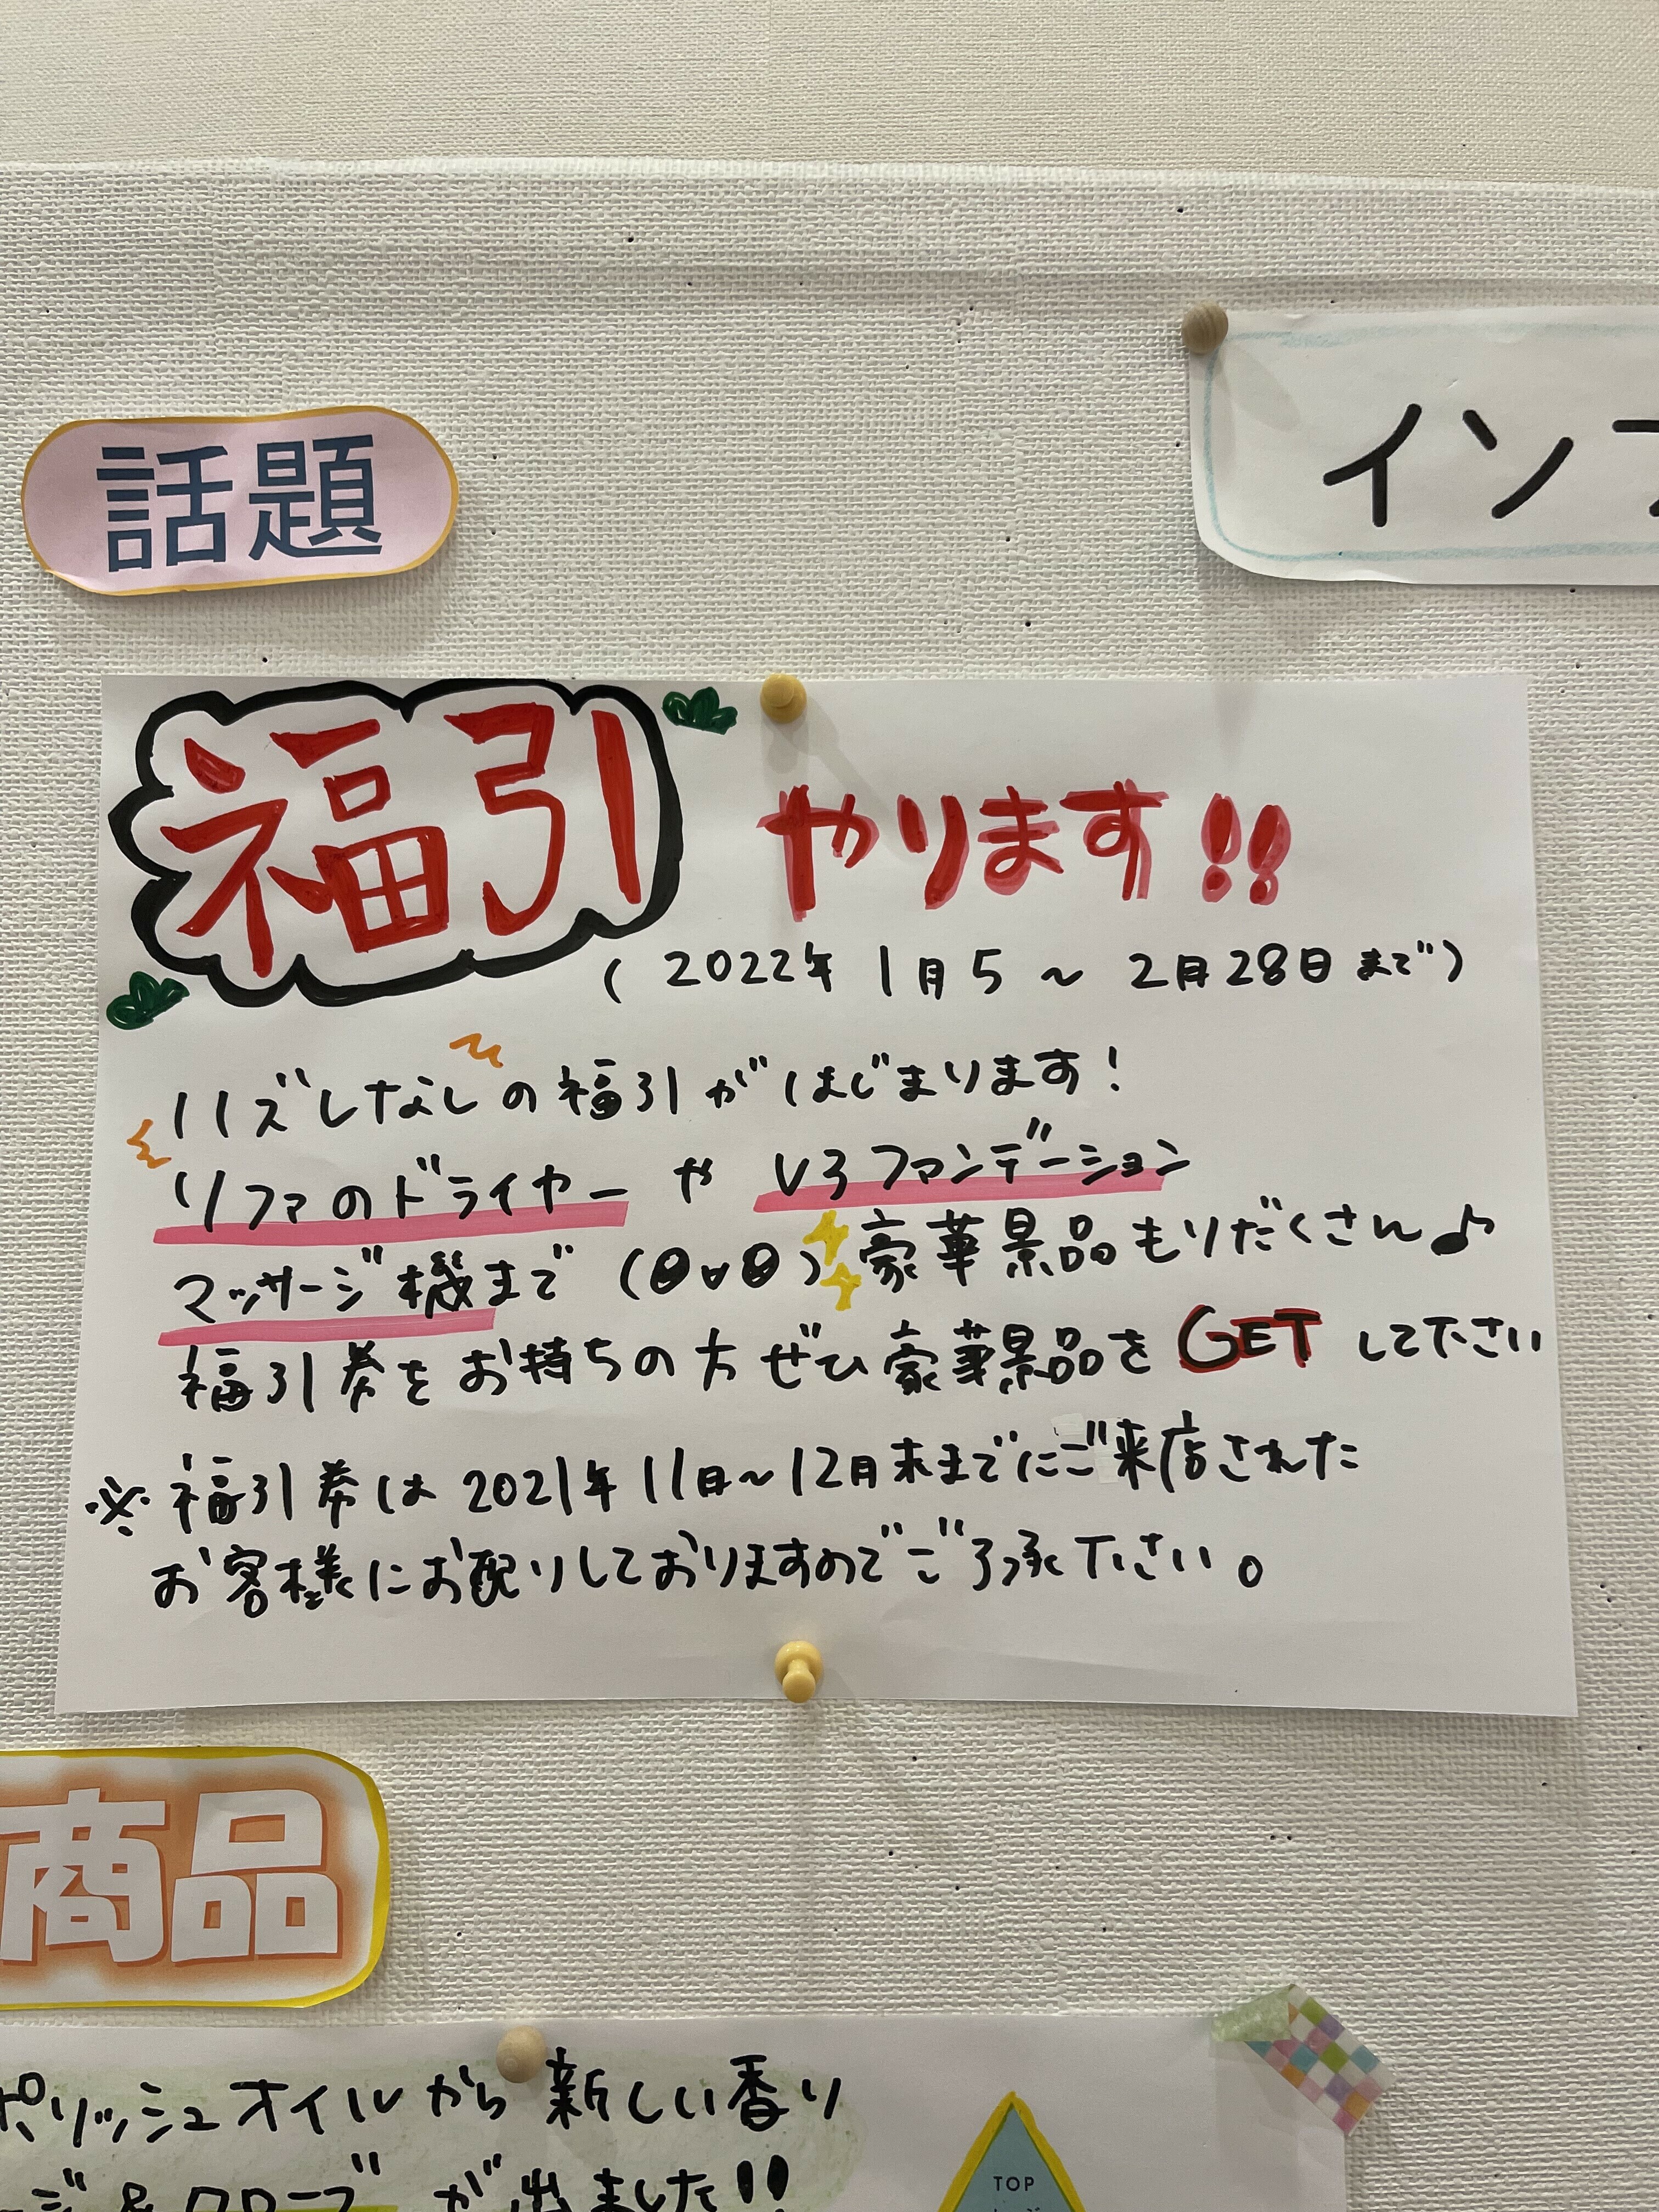 話題
イン
福引やります!!
(2022年 1月5 〜 2月28日まで)
ハズレなしの福引がはじまります!
リファのドライヤー や V3ファンデーション
マッサージ機まで 豪華景品もりだくさん♪
福引券をお持ちの方ぜひ豪華景品をGETして下さい
※福引券は2021年11月〜12月末までにご来店された
お客様にお配りしておりますのでご了承下さい。
商品
ポリッシュオイルから新しい香り
ジ&クローブが出ました!!
TOP